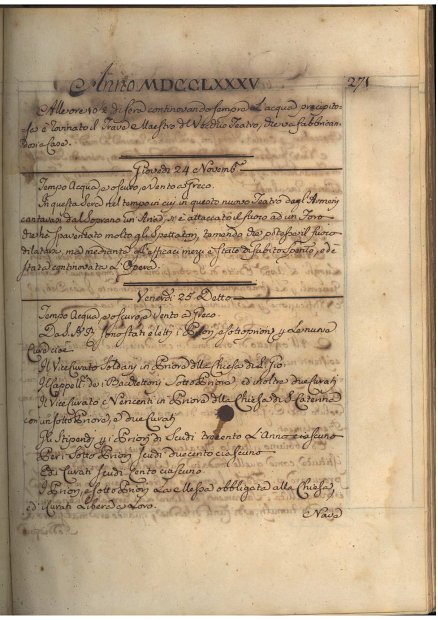 Anno MDCCLXXXV 271
Alle ore 10 e di Sera continovando sempre l'acqua precipito-
se è rovinato il Trave Maestro del Vecchio Teatro, che va fabbrican-
dosi a Case.
Giovedì 24 Novemb.
Tempo Acqua, e oscuro, e Vento a Greco.
In questa Sera nel tempo in cui in questo nuovo Teatro degl'Armeni
cantavasi dal Soprano un'Aria, si è attaccato il fuoco ad un Foro
che ha spaventato molto gli Spettatori, temendo che potesse il fuoco
dilatarsi, ma mediante gl'efficaci mezzi è stato di subito spento, ed è
stata continovata l'Opera.
Venerdì 25 Detto
Tempo Acqua, e oscuro, e Vento a Greco
Da S. A. R. sono stati eletti i Priori, e sotto Priori per le nuove
Cure cioè
Il Vice Curato Soldani in Priore della Chiesa di S. Gio.
Il Cappell. de' Bacchettoni Sotto Priore, ed inoltre due Curati
Il Vice Curato Vincenti in Priore della Chiesa di S. Caterina
con un sotto Priore, e due Curati
Gli Stipendj per i Priori di Scudi trecento l'Anno ciascuno
Per i Sotto Priori Scudi duecento ciascuno
E di Curati Scudi Cento ciascuno
I Priori, e sotto Priori la Messa obbligata alla Chiesa,
ed i Curati libera a loro.
Nava